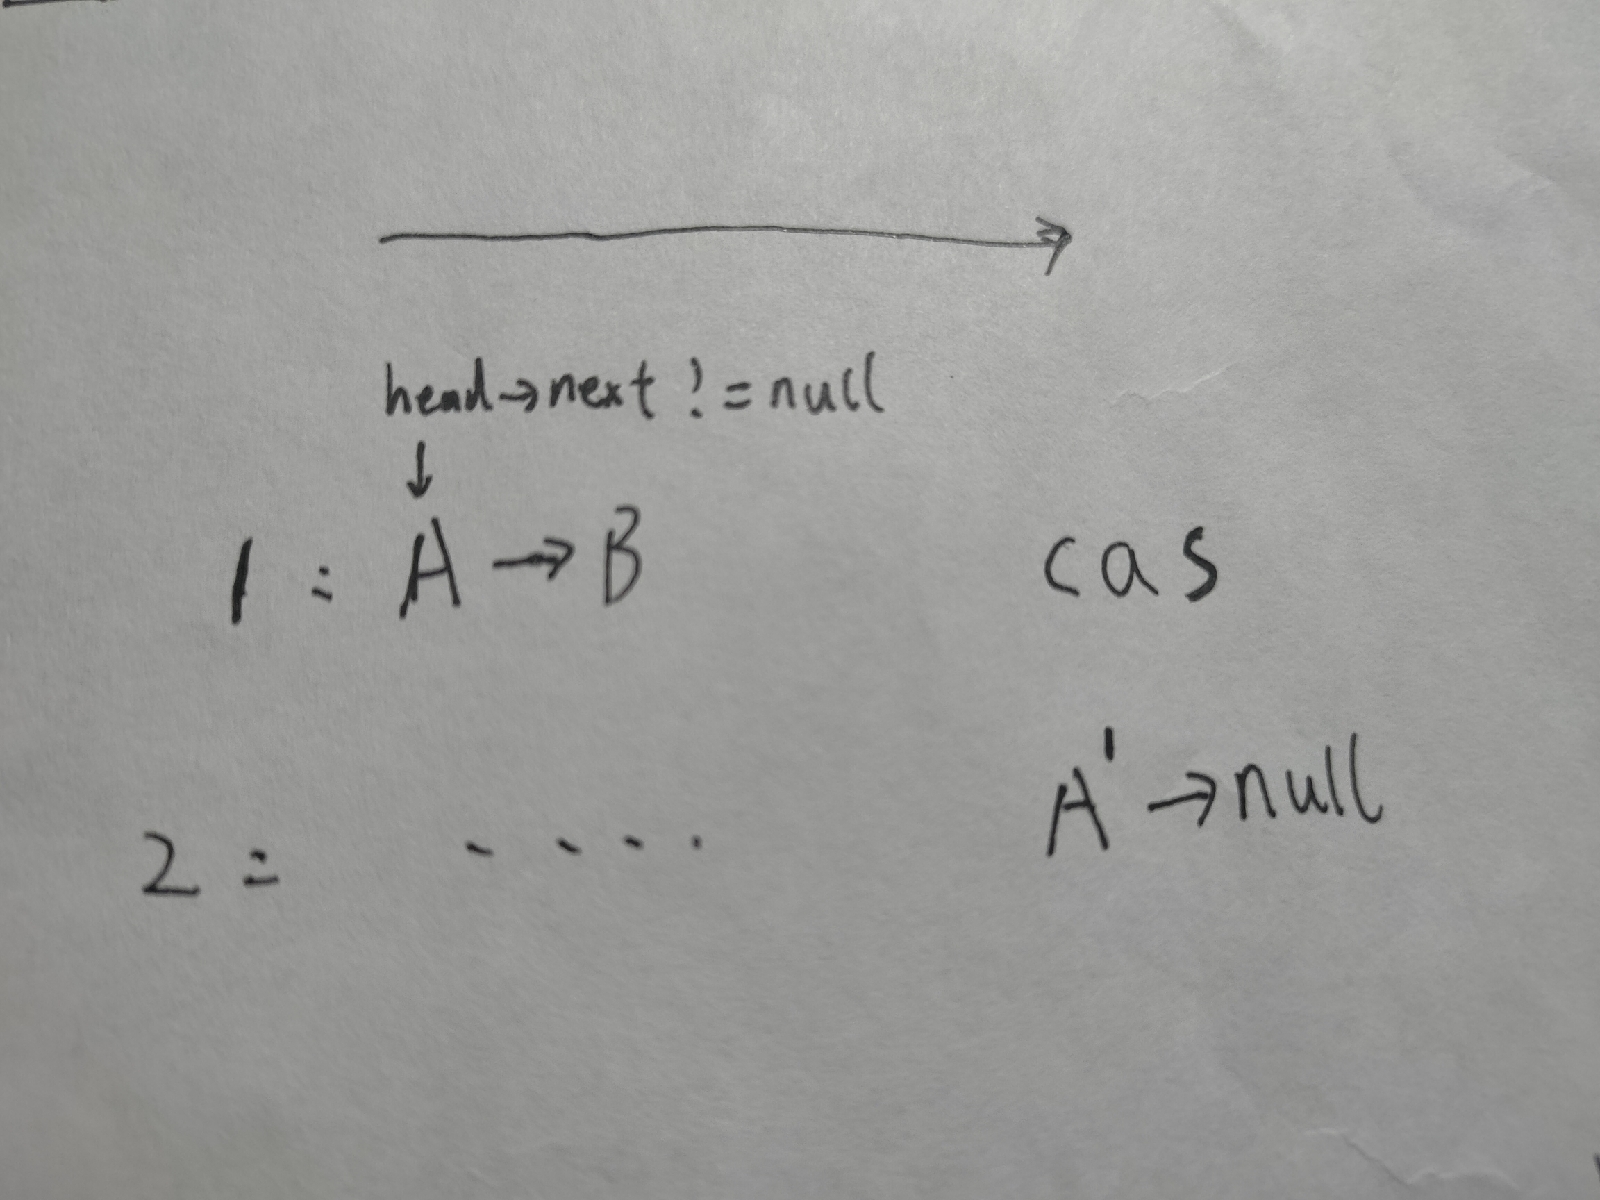 head→next != null
↓
1 : A → B cas
A' → null
2 : . . . .